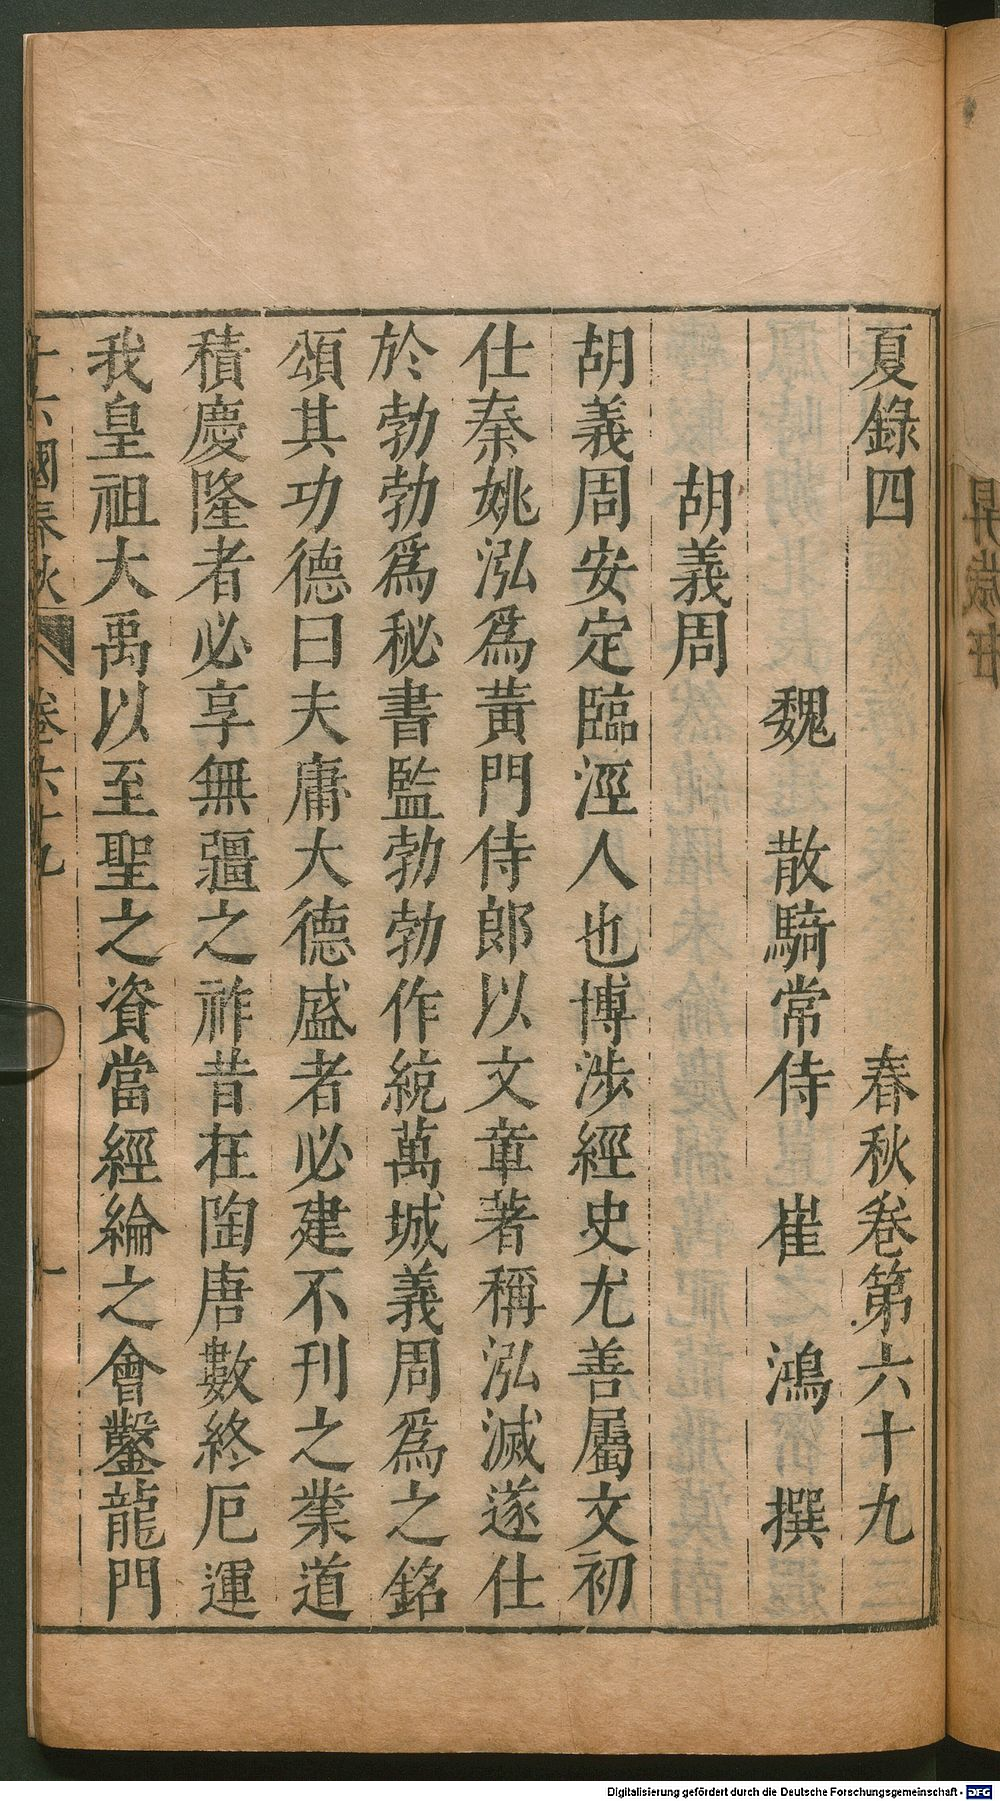 夏錄四　春秋卷第六十九
魏　散騎常侍　崔　鴻　撰
胡義周
胡義周安定臨涇人也博涉經史尤善屬文初
仕秦姚泓爲黃門侍郎以文章著稱泓滅遂仕
於勃勃爲秘書監勃勃作統萬城義周爲之銘
頌其功德曰夫庸大德盛者必建不刊之業道
積慶隆者必享無疆之祚昔在陶唐數終厄運
我皇祖大禹以至聖之資當經綸之會鑿龍門
十六國春秋　卷六十九　一
Digitalisierung gefördert durch die Deutsche Forschungsgemeinschaft - DFG